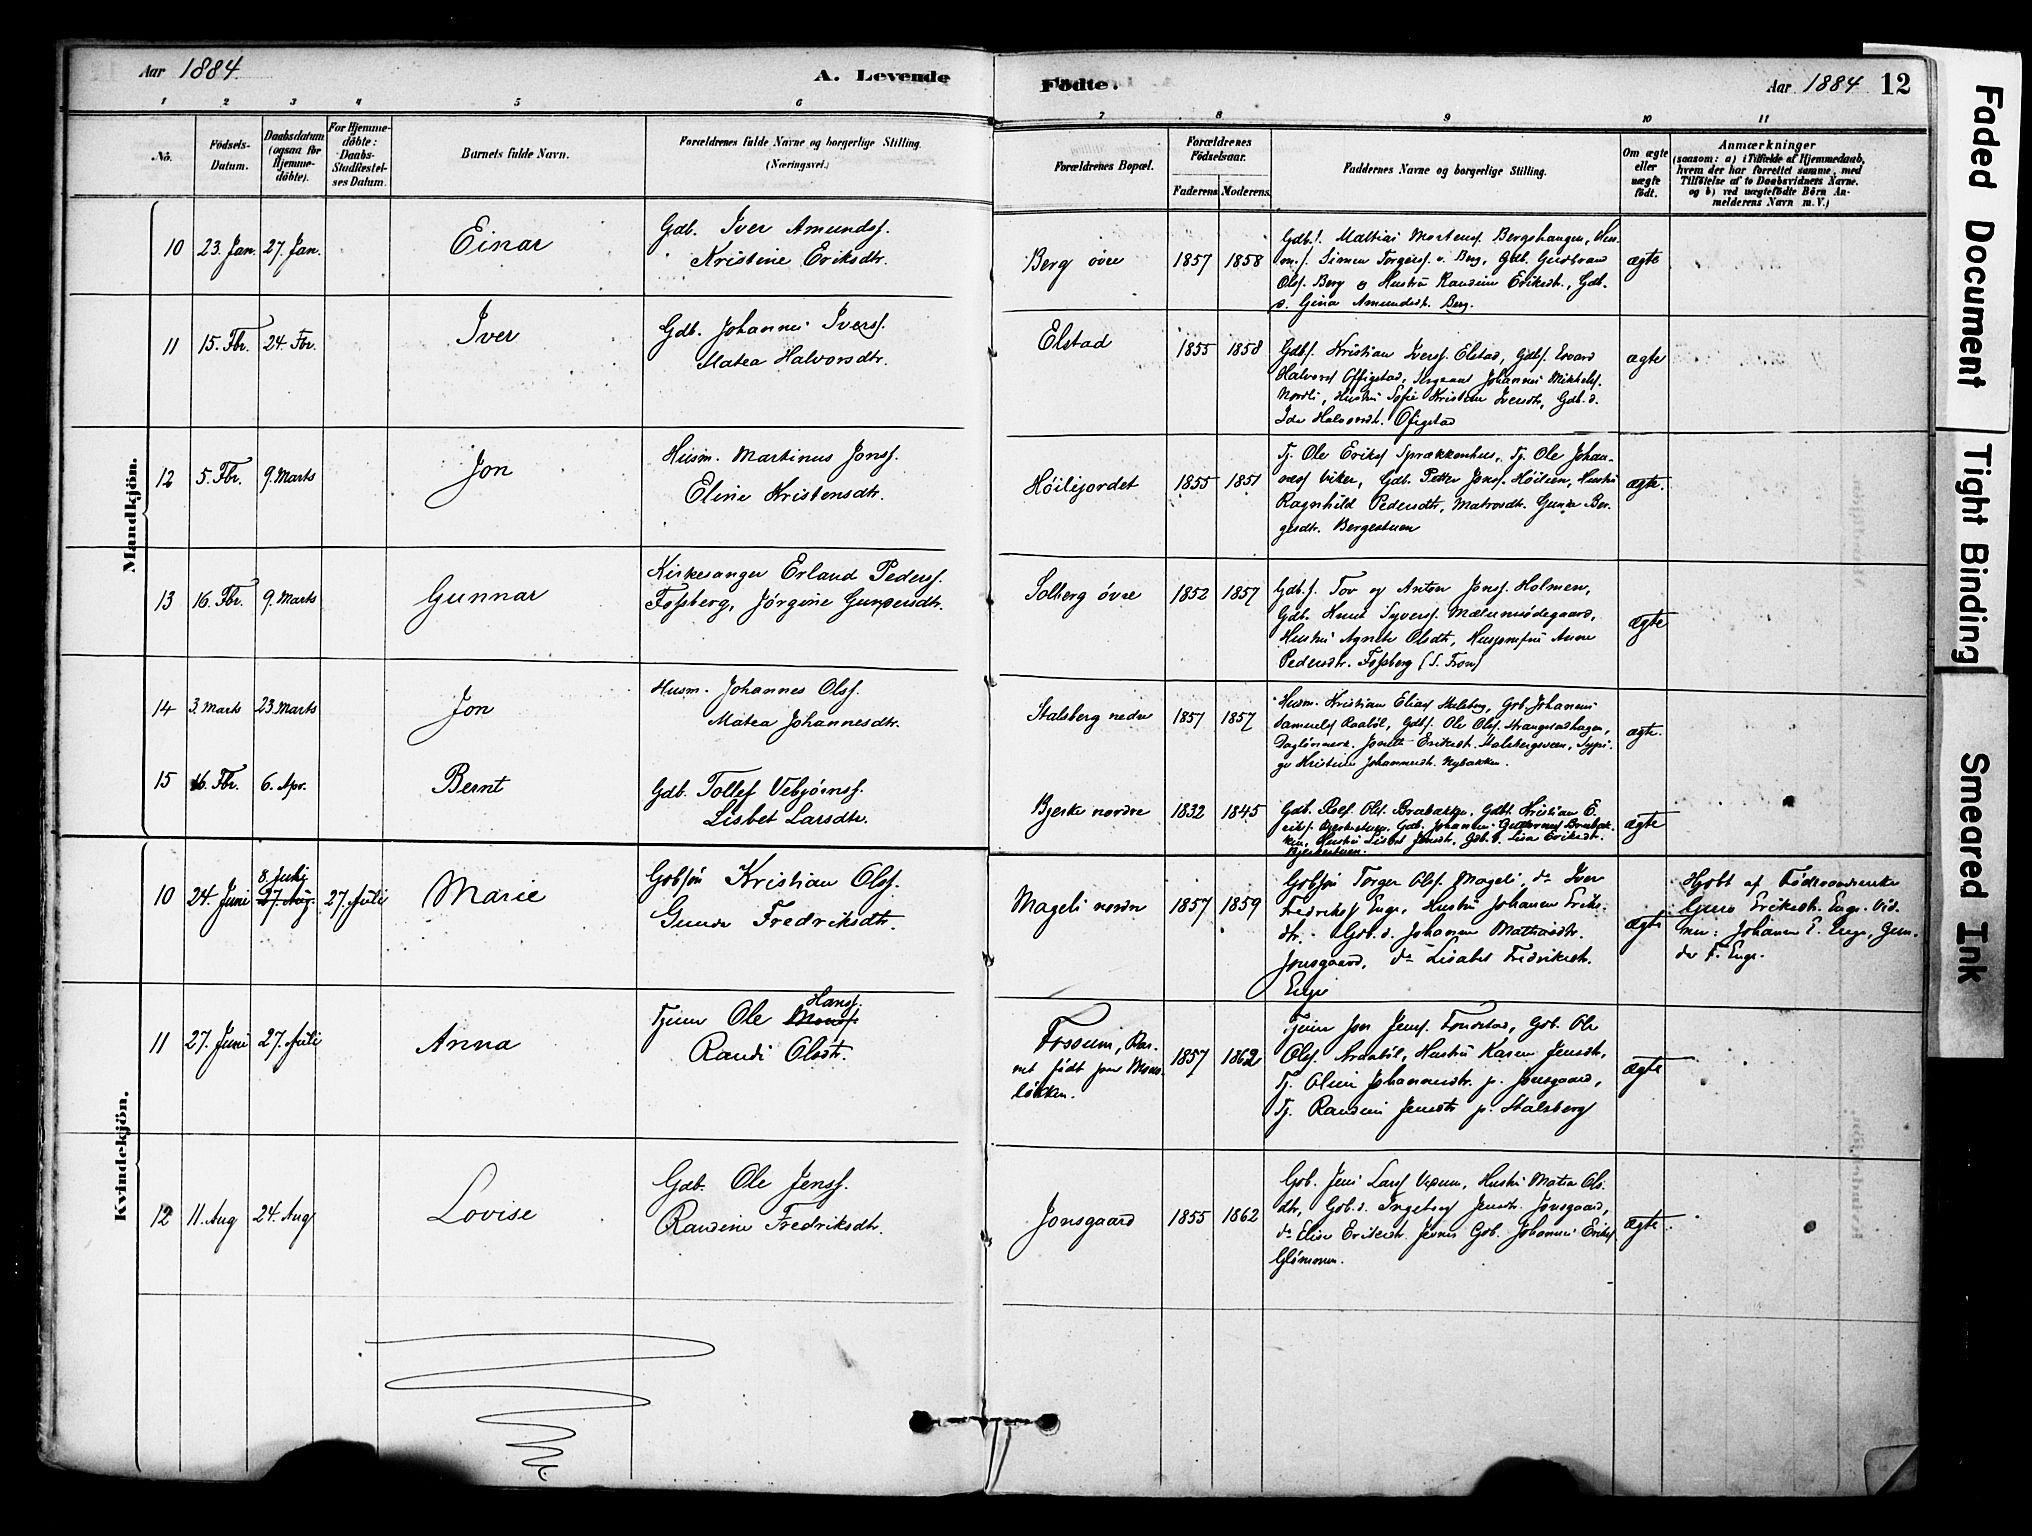 Aar 1884.
A. Levende
Födte.
Aar 1884
12
1 2 3 4 5 6
7 8 9 10 11
No.
Fødsels-
Datum.
Daabsdatum
(ogsaa för
Hjemme-
döbte).
For Hjemme-
döbte:
Daabs-
Stadfæstel-
ses Datum.
Barnets fulde Navn.
Forældrenes fulde Navne og borgerlige Stilling.
(Næringsvei.)
Forældrenes Bopæl.
Forældrenes
Födselsaar.
Faderens. Moderens.
Faddernes Navne og borgerlige Stilling.
Om ægte
eller
uægte
födt.
Anmærkninger
(saasom: a) i Tilfælde af Hjemmedaab,
hvem der har forrettet samme, med
Tilföielse af to Daabsvidners Navne.
og b) ved uægtefödte Börn An-
melderens Navn m. V.)
Mandkjön.
10 23. Jan. 27. Jan. Einar
Gdb. Iver Amundsf.
Kristine Eriksdtr.
Berg övre 1857 1858
Gdbs. Mathias Mortensf. Bergshaugen,
Simen Torgersf. Berg, Gdb. Gudbrand
Olsf. Berg o Hustru Randine Eriksdt., Gdb.
d. Gina Amundsdt. Berg.
ægte
11 15. Fbr. 24. Fbr. Iver
Gdb. Johannes Iversf.
Matea Halvorsdtr.
Elstad 1855 1858
Gdbs. Kristian Iversf. Elstad, Gdbs.
Halvorsf Offigstad, Sergeant Johannes Mikkelsf.
Nordli, Hustru Sofie Kristine Iversdtr, Gdb. d.
Ida Halvorsdt. Ofigstad
ægte
12 5. Fbr. 9. Marts Jon
Husm. Martinus Jonsf.
Eline Kristensdtr.
Höilijordet 1855 1851
Tj. Ole Eriksf Sprækkenhus, Tj. Ole Johan-
nesf Viker, Gdb. Petter Jonsf. Höilien, Hustru
Ragnhild Pedersdtr, Matrosdt. Gunda Ber-
gesdtr. Bergestuen
ægte.
13 16. Fbr. 9. Marts Gunnar
Kirkesanger Erland Pedersf.
Fossberg, Jörgine Gunnersdtr.
Solberg övre 1852 1857
Gdb. s. Tov og Anton Jonsf. Holmen,
Gdb. Knut Syversf.
Hustru Agnete Olsdt, Husjomfru Anne
Pedersdtr. Fossberg (S. Fron)
ægte
14 3. Marts 23. Marts Jon
Husm. Johannes Olsf.
Matea Johannesdtr.
Stalsberg nedre 1857 1857
Husm. Kristian Eliasf Stalsberg, Gdb. Johannes
Samuelsf Raaböl, Gdbs. Ole Olsf.
Jonette Eriksdt. Stalsbergsveen, Sypi-
ge Kristine Johannesdt. Nybakken.
ægte.
15 16. Fbr. 6. Apr. Bernt
Gdb. Tollef Vebjörnsf.
Lisbet Larsdtr.
Bjerke nordre 1832 1845
Gdb. Olsf. Brabakke, Gdbs. Kristian E-
riksf. Bjerkestuen, Gdb. Johannes Brabak-
ken, Hustru Lisbet Jensdt, Gdb. d. Lisa Eriksdt.
Bjerkestuen.
ægte
Kvindekjön.
10 24. Juni 8. Juli 27. Aug. 27. Juli Marie
Gdbsön Kristian Olsf.
Gunda Fredriksdtr.
Mageli nordre 1857 1859
Gdbsön Torger Olsf. Mageli, do Iver
Fredriksf Enge, Hustru Johanne Eriks-
dtr. Gdb. d. Johanne Mathiasdtr.
Jonsgaard, do Lisabet Fredriksdt.
Enge
ægte
Hjdbt af
Guro Eriksdt. Enge. Vid-
ner: Johanne E. Enge, Gun-
da F. Enge.
11 27. Juni 27. Juli Anna
Tjener Ole Monsf. Hansf.
Randi Olsdtr.
Fossum, Bar-
net födt paa Mons-
lökken.
1857 1862
Tjener Jon Jensf. Tondstad, Gdb. Ole
Olsf. Hustru Karen Jensdtr,
Tj. Oline Johannesdtr. p. Jonsgaard,
Tj. Randine Jensdtr p. Stalsberg
ægte
12 11. Aug 24. Aug Lovise
Gdb. Ole Jensf.
Randine Fredriksdtr.
Jonsgaard 1855 1862
Gdb. Jens Larsf Vexum, Hustru Matea Ols-
dtr, Gdb. d. Ingeborg Jensdtr. Jonsgaard,
do Elise Eriksdt. Jevne Gdb. Johannes Eriksf
Glömmen.
ægte.
Faded Document
Tight Binding
Smeared Ink